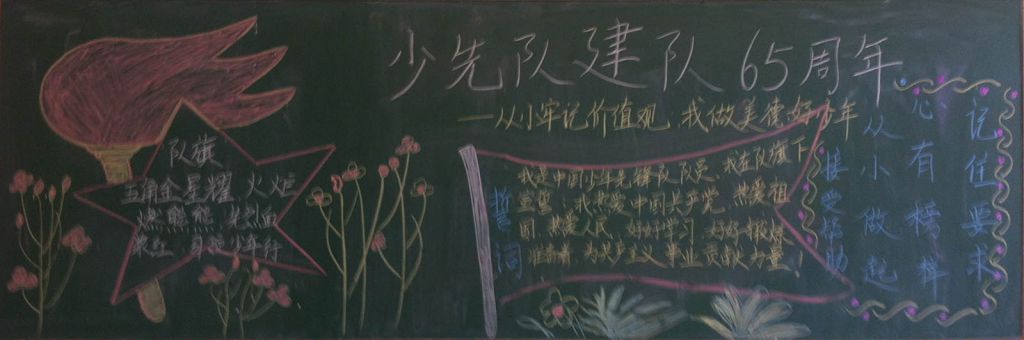 少先队建队65周年
——从小牢记价值观 我做美德好少年
队旗
五角金星耀 火炬
燃熊熊
誓词
我是中国少年先锋队队员。我在队旗下
宣誓:我热爱中国共产党,热爱祖
国,热爱人民,好好学习,好好锻炼,
准备着:为共产主义事业贡献力量!
记住要求
心有榜样
从小做起
接受帮助